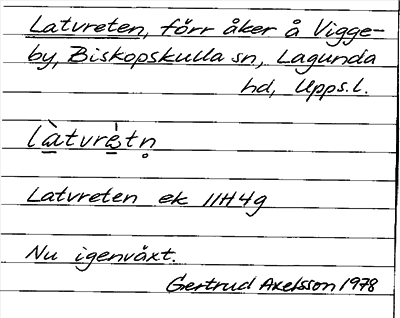 Latvreten, förr åker å Vigge-
by, Biskopskulla sn, Lagunda
hd, Upps.l.
là̱tvrè̱tn̥
Latvreten ek 11H4g
Nu igenväxt.
Gertrud Axelsson 1978